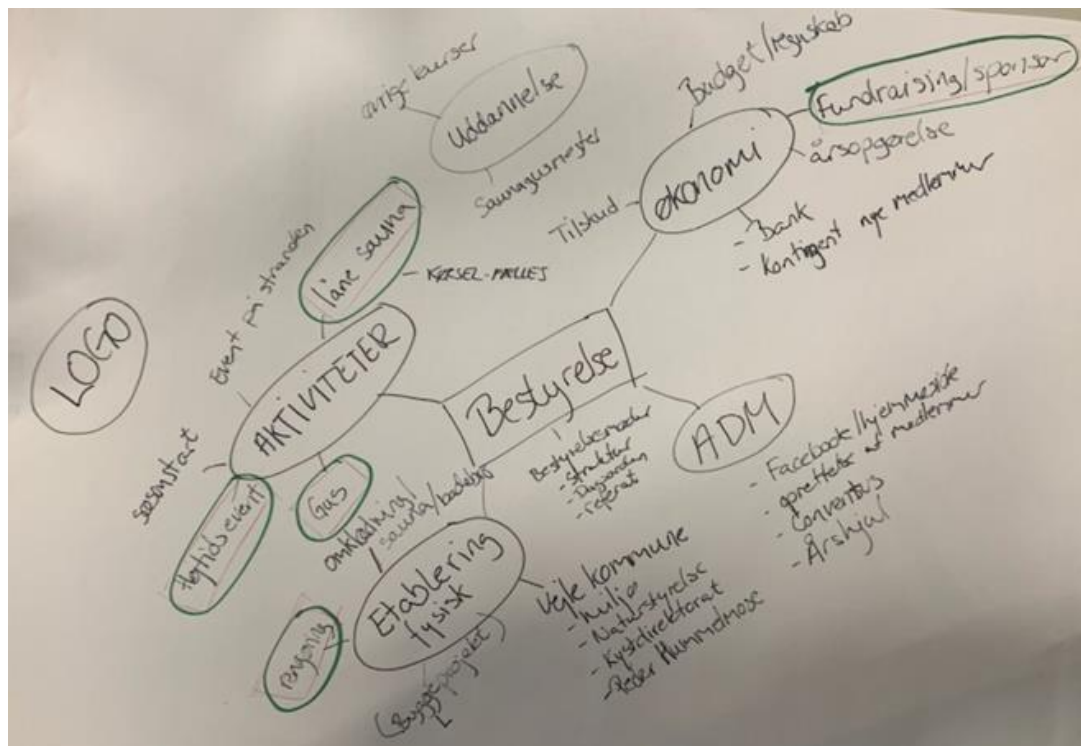 øvrige kurser
Uddannelse
Saunagusmester
Budget/regnskab
Fundraising/sponsor
årsopgørelse
økonomi
Tilskud
- Bank
- Kontingent nye medlemmer
Event på stranden
låne sauna
- KØRSEL-FÆLLES
LOGO
AKTIVITETER
sæsonstart
Højtidsevent
Gus
Bestyrelse
Bestyrelsesmøder
- struktur
- Dagsorden
- referat
ADM
- Facebook/hjemmeside
- oprettelse af medlemmer
- Conventus
- Årshjul
omklædning/
sauna/
Etablering
fysisk
rengøring
(Byggeprojekt)
Vejle kommune
- miljø
- Naturstyrelse
- Kystdirektorat
- Peder Hummelmose